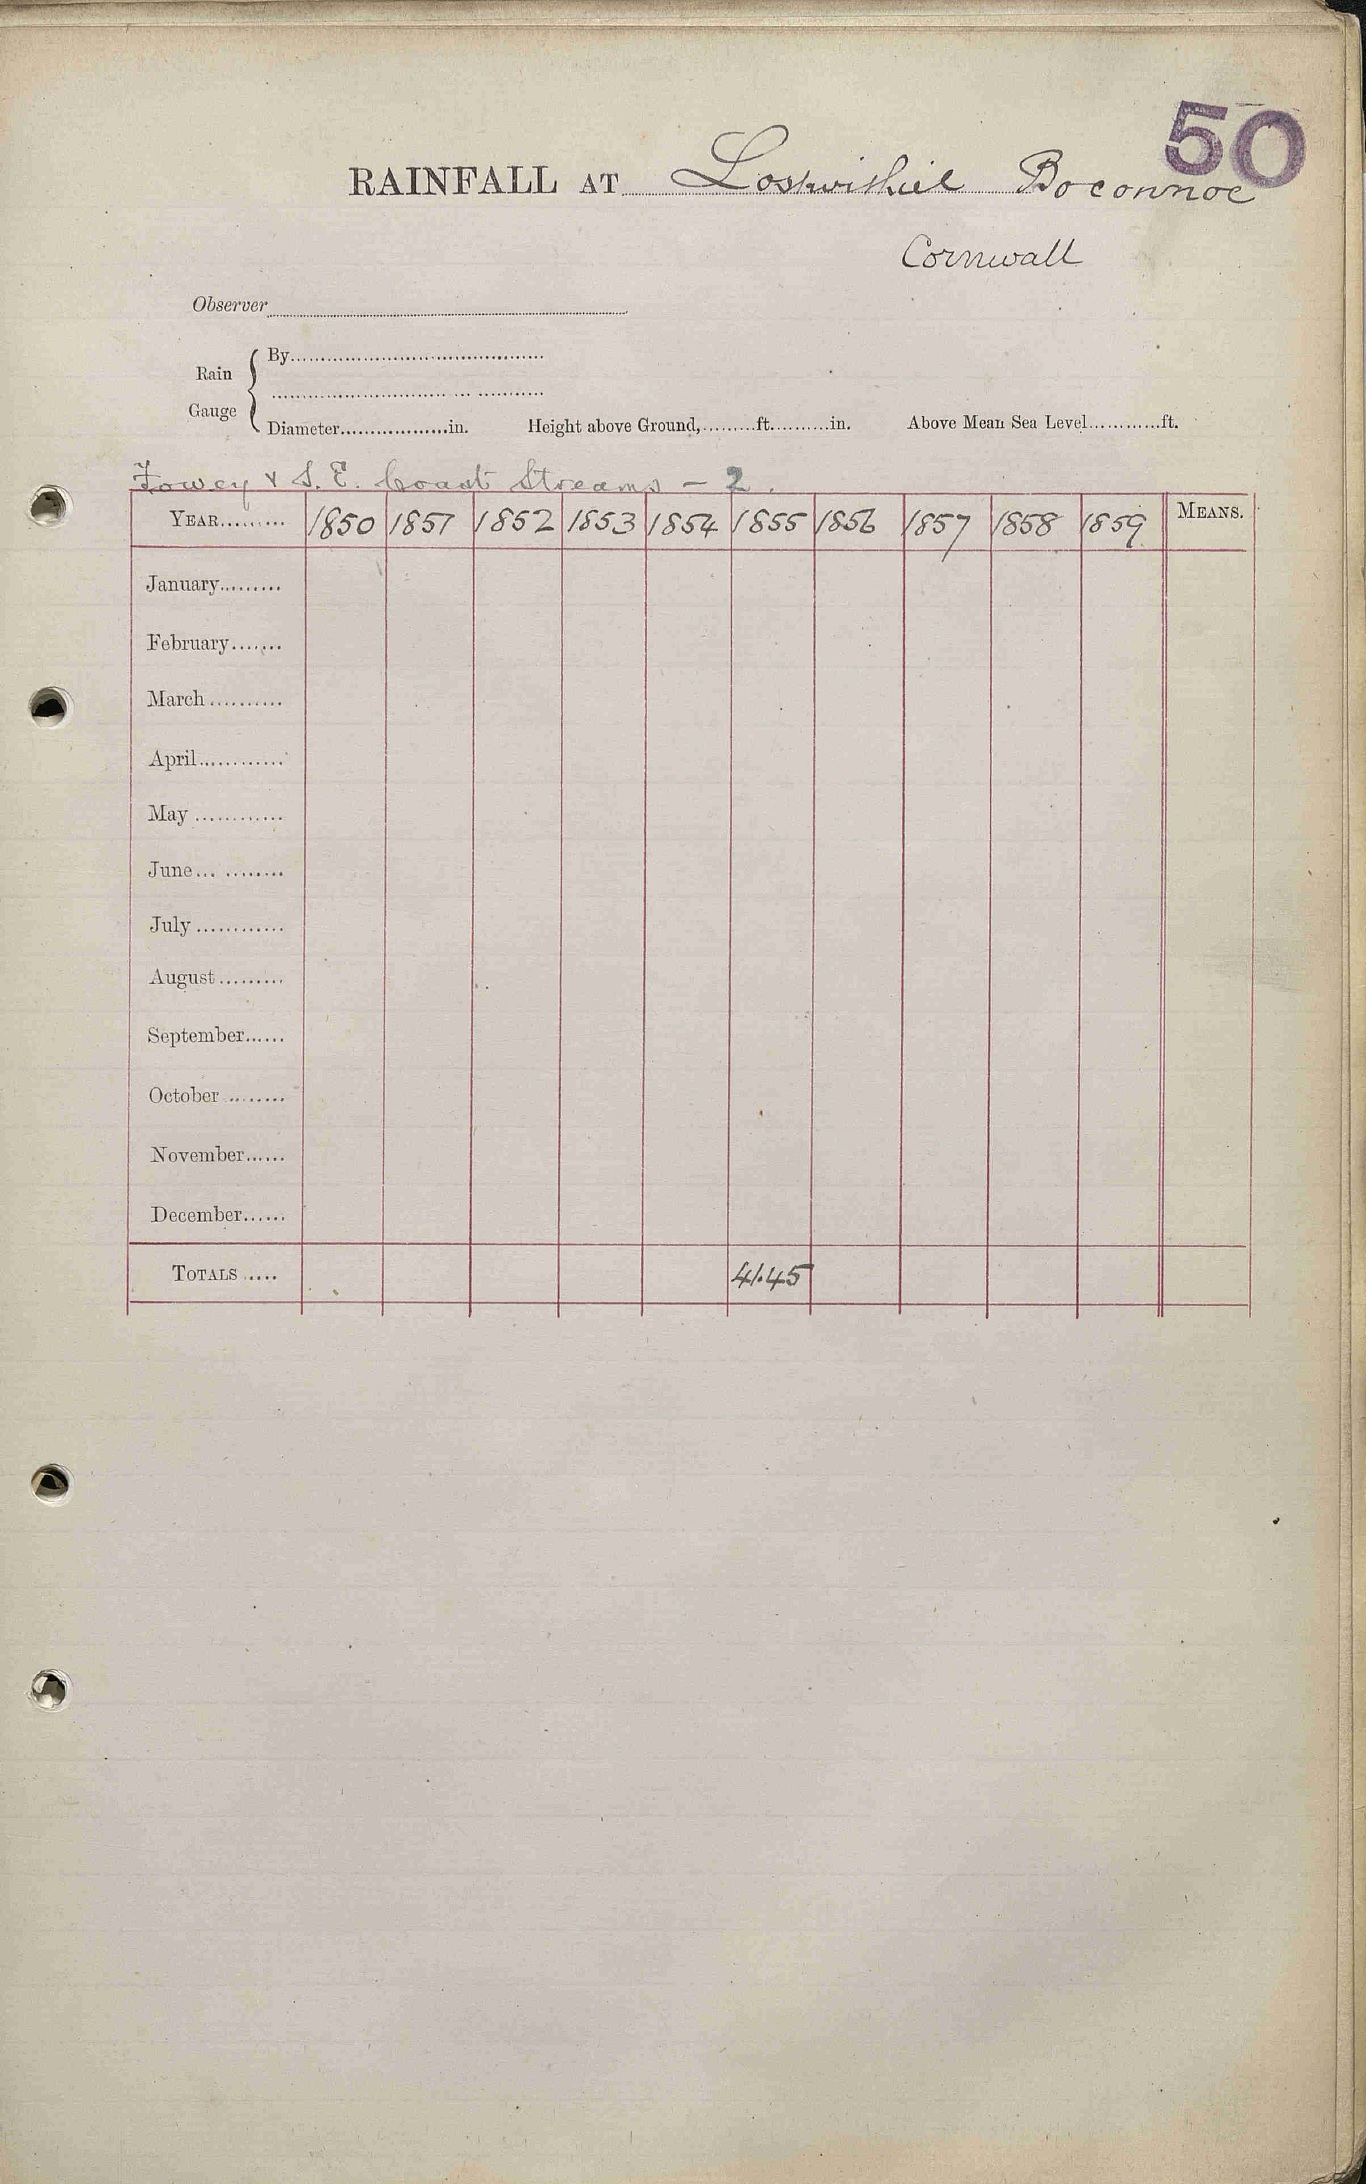 50
RAINFALL AT Lostwithiel Boconnoc
Cornwall
Observer
Rain Gauge
By
Diameter in. Height above Ground, ft. in. Above Mean Sea Level ft.
Fowey & S.E. Coast Streams - 2.
YEAR 1850 1851 1852 1853 1854 1855 1856 1857 1858 1859 MEANS.
January
February
March
April
May
June
July
August
September
October
November
December
TOTALS 41.45